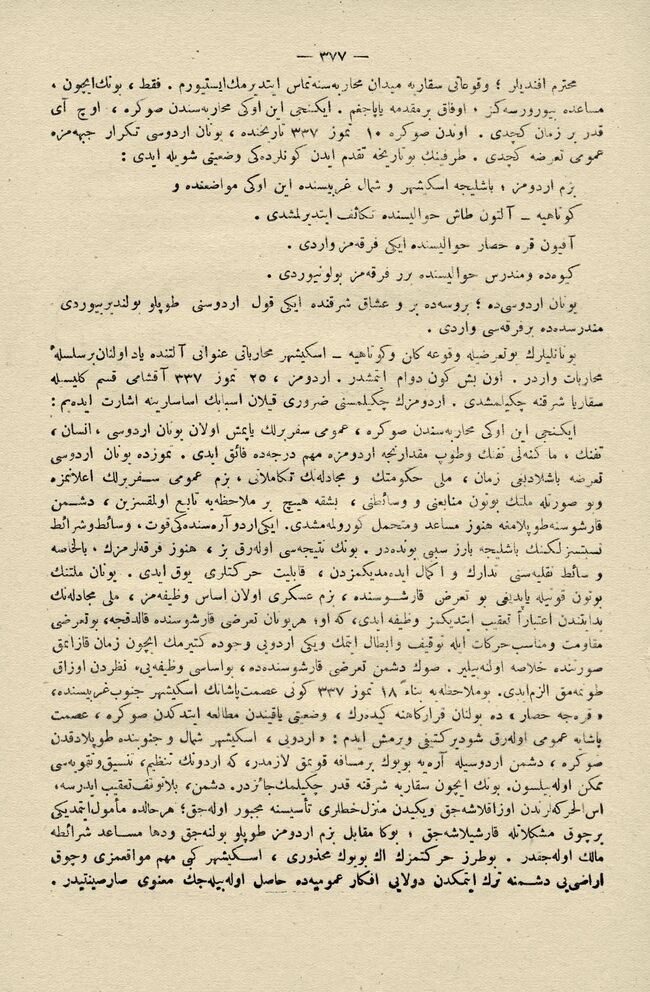 — ٣٧٧ —
محترم افندیلر ؛ وقوعاتی سقاریه میدان محاربه‌سنه تماس ایتدیرمك ایستیورم . فقط ، بونك ایچون ،
مساعده بیورورسه‌كز ، اوفاق بر مقدمه یاپاجغم . ایكنجی این اوكی محاربه‌سندن صوكره ، اوچ آی
قدر بر زمان كچدی . اوندن صوكره ١٠ تموز ٣٣٧ تاریخنده ، یونان اردوسی تكرار جبهه‌مزه
عمومی تعرضه كچدی . طرفینك بو تاریخه تقدم ایدن كونلرده‌كی وضعیتی شویله ایدی :
بزم اردومز ؛ باشلیجه اسكیشهر و شمال غربیسنده این اوكی مواضعنده و
كوتاهیه ــ آلتون طاش حوالیسنده تكاثف ایتدیرلمشدی .
آفیون قره حصار حوالیسنده ایكی فرقه‌مز واردی .
كیوه‌ده ومندرس حوالیسنده برر فرقه‌مز بولونیوردی .
یونان اردوسی‌ده ؛ بروسه‌ده بر و عشاق شرقنده ایكی قول اردوسنی طوپلو بولندیریوردی
مندرسده‌ده بر فرقه‌سی واردی .
یونانلیلرك بو تعرضیله وقوعه كلن وكوتاهیه ــ اسكیشهر محارباتی عنوانی آلتنده یاد اولنان بر سلسلهٔ
محاربات واردر . اون بش كون دوام ایتمشدر . اردومز ، ٢٥ تموز ٣٣٧ آقشامی قسم كلیسیله
سقاریا شرقنه چكیلمشدی . اردومزك چكیلمسنی ضروری قیلان اسبابك اساسلرینه اشارت ایده‌یم :
ایكنجی این اوكی محاربه‌سندن صوكره ، عمومی سفربرلك یاپمش اولان یونان اردوسی ، انسان ،
تفنك ، ماكنه‌لی تفنك وطوپ مقدارنجه اردومزه مهم درجه‌ده فائق ایدی . تموزده یونان اردوسی
تعرضه باشلادیغی زمان ، ملی حكومتك و مجادله‌نك تكاملاتی ، بزم عمومی سفربرلك اعلانمزه
وبو صورتله ملتك بوتون منابعنی و وسائطنی ، بشقه هیچ بر ملاحظه‌یه تابع اولقسزین ، دشمن
قارشوسنه طوپلامغه هنوز مساعد ومتحمل كورولمه‌مشدی . ایكی اردو آره‌سنده‌كی قوت ، وسائط وشرائط
نسبتسزلكنك باشلیجه بارز سببی بونده‌در . بونك نتیجه‌سی اوله‌رق بز ، هنوز فرقه‌لرمزك ، بالخاصه
و سائط نقلیه‌سنی تدارك و اكمال ایده‌مدیكمزدن ، قابلیت حركتلری یوق ایدی . یونان ملتنك
بوتون قوتیله یاپدیغی بو تعرض قارشوسنده ، بزم عسكری اولان اساس وظیفه‌مز ، ملی مجادله‌نك
بدایتندن اعتباراً تعقیب ایتدیكمز وظیفه ایدی ، كه او؛ هر یونان تعرضی قارشوسنده قالدقجه ، بو تعرضی
مقاومت ومناسب حركات ایله توقیف وابطال ایتمك ویكی اردویی وجوده كتیرمك ایچون زمان قازانمق
صورتنده خلاصه اولنه‌بیلیر . صوك دشمن تعرضی قارشوسنده‌ده ، بواساسی وظیفه‌یی ، نظردن اوزاق
طوتمه‌مق الزم ایدی . بو ملاحظه‌یه بناءً ١٨ تموز ٣٣٧ كونی عصمت پاشانك اسكیشهر جنوب غربیسنده ،
« قره‌جه حصار » ده بولنان قراركاهنه كیده‌رك ، وضعیتی یاقیندن مطالعه ایتدكدن صوكره ، عصمت
پاشایه عمومی اوله‌رق شو دیركتیفی ویرمش ایدم : « اردویی ، اسكیشهر شمال و جنوبنده طوپلادقدن
صوكره ، دشمن اردوسیله آره‌یه بویوك بر مسافه قویمق لازمدر، كه اردونك تنظیم ، تنسیق وتقویه‌سی
ممكن اوله‌بیلسون . بونك ایچون سقاریه شرقنه قدر چكیلمك جائزدر. دشمن، بلا توقف تعقیب ایدرسه،
اس الحركه‌لرندن اوزاقلاشه‌جق ویكیدن منزل خطلری تأسیسنه مجبور اوله‌جق؛ هر حالده مأمول ایتمدیكی
بر چوق مشكلاتله قارشیلاشه‌جق ؛ بوكا مقابل بزم اردومز طوپلو بولنه‌جق ودها مساعد شرائطه
مالك اوله‌جقدر . بو طرز حركتمزك اك بویوك محذوری ، اسكیشهر كبی مهم مواقعمزی وچوق
اراضی‌یی دشمنه ترك ایتمكدن دولایی افكار عمومیه‌ده حاصل اوله‌بیله‌جك معنوی صارصینتیدر .